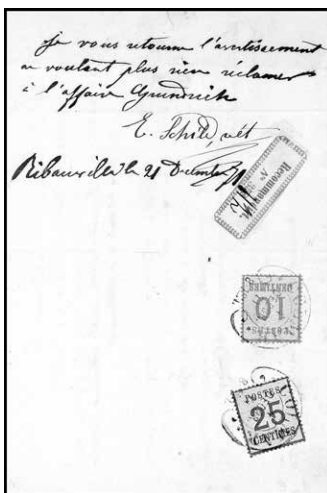 Je vous retourne l'avertissement
ne voulant plus rien réclamer
à l'affaire
E. Schild, vét
Ribeauvillé le 21 Décembre
Recommandirt.
POSTES
10
CENTIMES
POSTES
25
CENTIMES